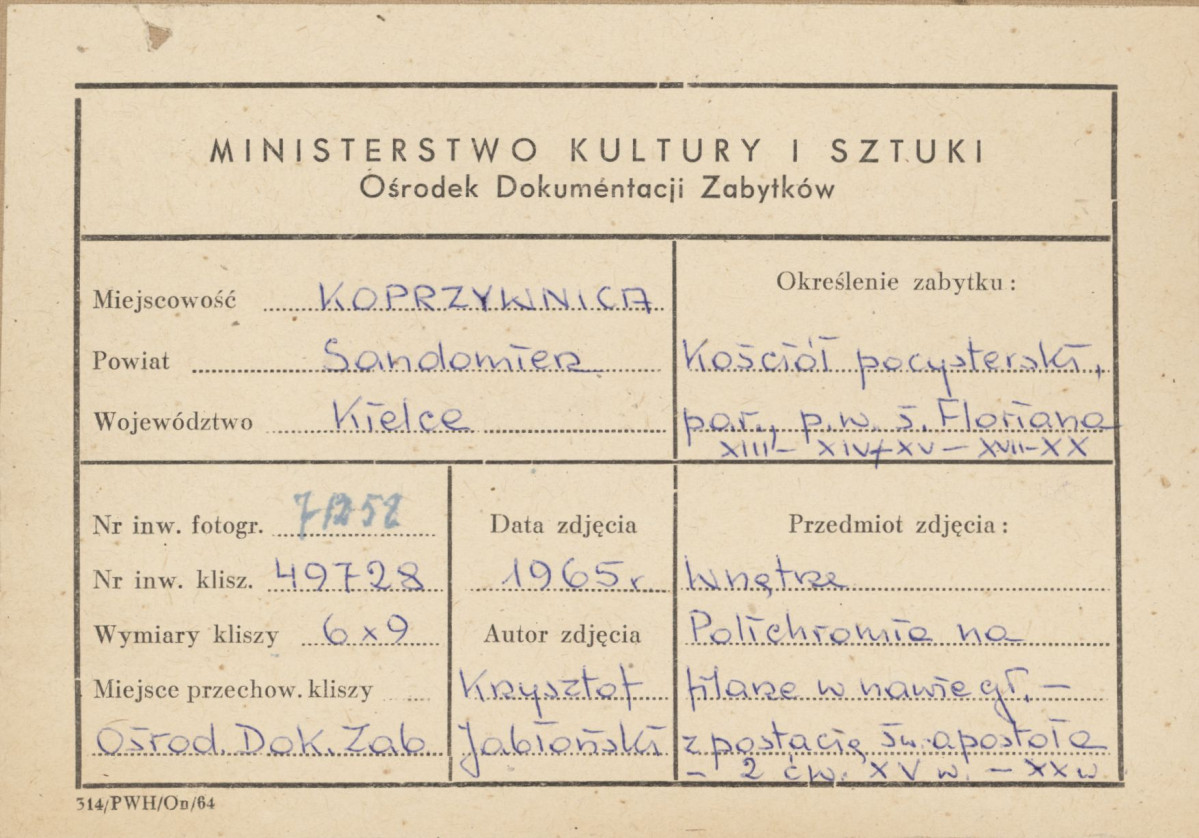 MINISTERSTWO KULTURY I SZTUKI
Ośrodek Dokumentacji Zabytków
Miejscowość KOPRZYWNICA
Powiat Sandomierz
Województwo Kielce
Określenie zabytku:
Kościół pocysterski,
par., p.w. ś. Floriana
XIII – XIV/XV – XVII-XX
Nr inw. fotogr.
Nr inw. klisz. 49728
Wymiary kliszy 6x9
Miejsce przechow. kliszy
Ośrod. Dok. Zab
Data zdjęcia
1965 r
Autor zdjęcia
Krzysztof
Jabłoński
Przedmiot zdjęcia:
Wnętrze
Polichromia na
filarze w nawie gł. –
z postacią św. apostoła
– 2 ćw. XV w. – XX w.
314/PWH/On/64